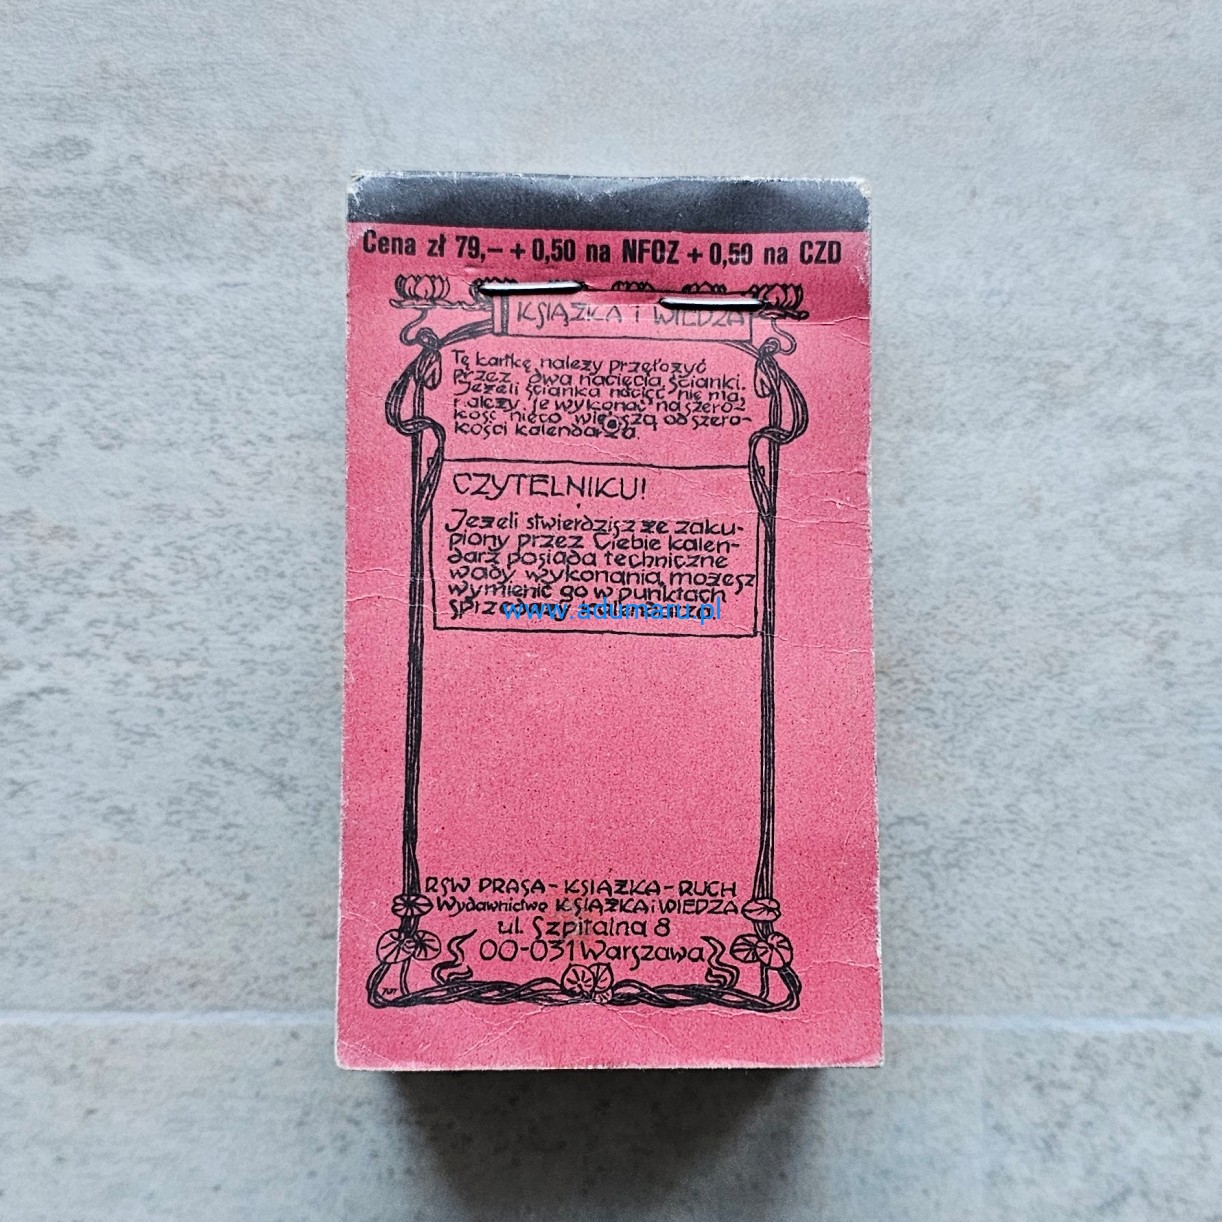 Cena zł 79,– + 0,50 na NFOZ + 0,50 na CZD
KSIĄŻKA i WIEDZA
Tę kartkę należy przełożyć
przez dwa nacięcia ścianki.
Jeżeli ścianka nacięć nie ma,
należy je wykonać na szero-
kość nieco większą od szero-
kości kalendarza.
CZYTELNIKU!
Jeżeli stwierdzisz że zaku-
piony przez Ciebie kalen-
darz posiada techniczne
wady wykonania, możesz
wymienić go w punktach
sprzedaży kalendarza.
www.adumaru.pl
RSW PRASA - KSIĄŻKA - RUCH
Wydawnictwo KSIĄŻKA i WIEDZA
ul. Szpitalna 8
00-031 Warszawa